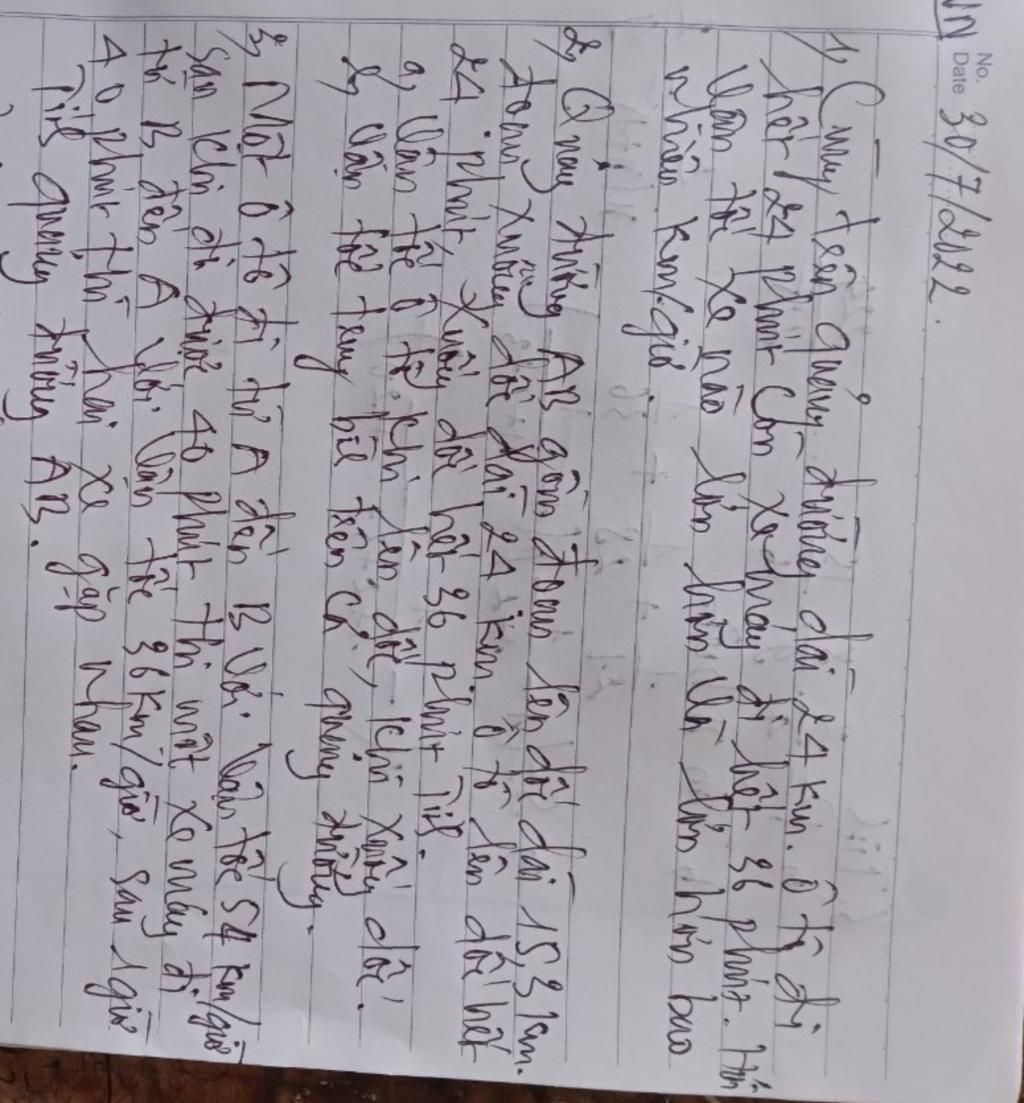 VN
No.
Date 30/7/2022.
1, Cùng trên quãng đường dài 24 km. ô tô đi
hết 24 phút còn xe máy đi hết 36 phút. Hỏi
Vận tốc xe nào lớn hơn Và lớn hơn bao
nhiêu km/giờ
2, Quãng đường AB gồm đoạn lên dốc dài 15,3 km.
đoạn xuống dốc dài 24 km ô tô lên dốc hết
24 phút, xuống dốc hết 36 phút Tính.
a, Vận tốc ô tô khi lên dốc, khi xuống dốc.
b, Vận tốc trung bình trên cả quãng đường.
3, Một ô tô đi từ A đến B Với vận tốc 54 km/giờ
sau khi đi được 40 phút thì một xe máy đi
từ B đến A Với vận tốc 36 km/giờ, sau 1 giờ
40 phút thì hai xe gặp nhau.
Tính quãng đường AB.